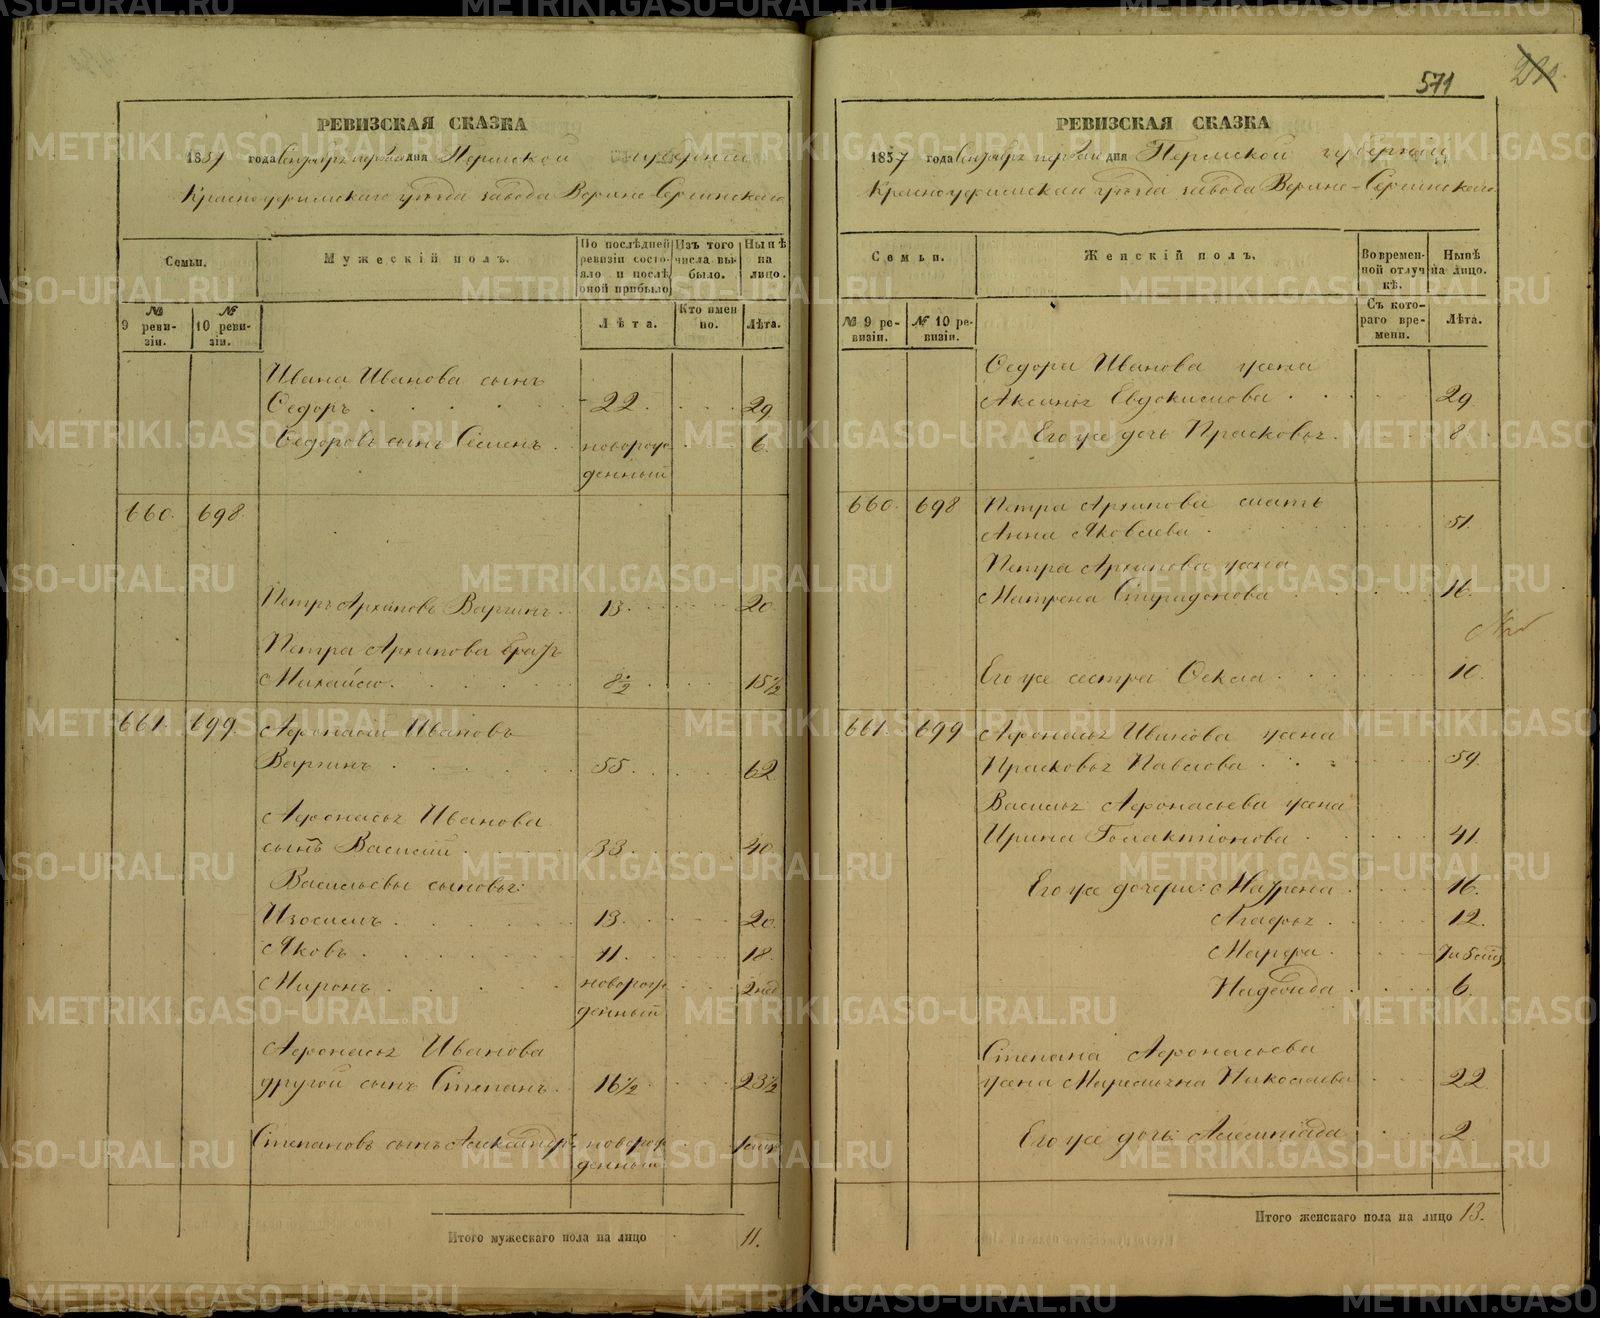 571
РЕВИЗСКАЯ СКАЗКА
1857 года Сентября первая дня Пермской губерніи
Красноуфимскаго уѣзда завода Верхне-Сергинскаго
Семьи.
Мужескій полъ.
По послѣдней ревизіи состояло и послѣ оной прибыло
Изъ того числа выбыло.
Нынѣ на лицо.
№ 9 ревизіи.
№ 10 ревизіи.
Лѣта.
Кто именно.
Лѣта.
Ивана Иванова сынъ
Федоръ 22. 29
Федоровъ сынъ Семенъ новорож 6.
денный
660. 698.
Петръ Архиповъ Варгинъ 13 20
Петра Архипова братъ
Михайло 8½ 15½
661. 699. Афонасій Ивановъ
Варгинъ 55. 62
Афонасья Иванова
сынъ Василій 33. 40
Васильевы сыновья:
Изосимъ 13. 20.
Яковъ 11. 18.
Миронъ новорож 2 нед
денный
Афонасья Иванова
другой сынъ Степанъ 16½ 23½
Степановъ сынъ Александръ новорож
денный
Итого мужескаго пола на лицо 11.
РЕВИЗСКАЯ СКАЗКА
1857 года Сентября первая дня Пермской губерніи
Красноуфимскаго уѣзда завода Верхне-Сергинскаго
Семьи.
Женскій полъ.
Во временной отлучкѣ.
Нынѣ на лицо.
№ 9 ревизіи.
№ 10 ревизіи.
Съ котораго времени.
Лѣта.
Федора Иванова жена
Аксинья Евдокимова 29
Его же дочь Прасковья. 8
660. 698 Петра Архипова мать
Анна Яковлева 51.
Петра Архипова жена
Матрена Спиридонова 16.
Его же сестра Фекла 10.
661. 699 Афонасья Иванова жена
Прасковья Павлова 59.
Василья Афонасьева жена
Ирина Галактіонова 41.
Его же дочери: Матрена 16.
Агафья 12.
Марфа
Надежда 6.
Степана Афонасьева
жена Маремьяна Николаева 22
Его же дочь Алимпіада 2.
Итого женскаго пола на лицо 13.
METRIKI.GASO-URAL.RU